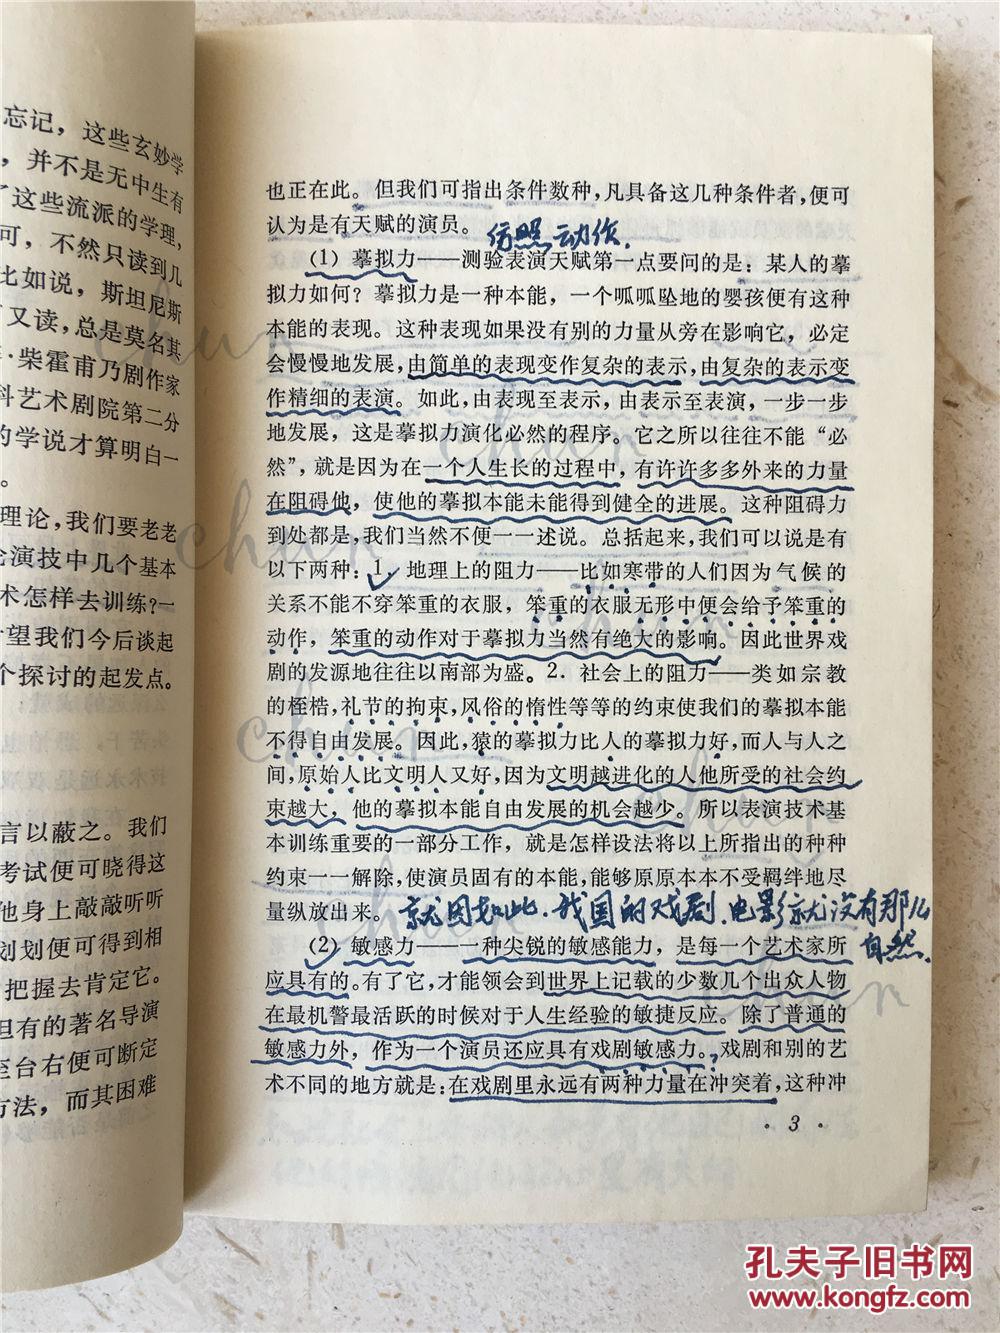 忘记，这些玄妙学
，并不是无中生有
这些流派的学理，
可，不然只读到几
比如说，斯坦尼斯
又读，总是莫名其
·柴霍甫乃剧作家
科艺术剧院第二分
的学说才算明白一
。
理论，我们要老老
论演技中几个基本
术怎样去训练？一
望我们今后谈起
个探讨的起发点。
言以蔽之。我们
考试便可晓得这
他身上敲敲听听
划划便可得到相
把握去肯定它。
但有的著名导演
至台右便可断定
方法，而其困难
也正在此。但我们可指出条件数种，凡具备这几种条件者，便可
认为是有天赋的演员。
仿照动作.
（1）摹拟力——测验表演天赋第一点要问的是：某人的摹
拟力如何？摹拟力是一种本能，一个呱呱坠地的婴孩便有这种
本能的表现。这种表现如果没有别的力量从旁在影响它，必定
会慢慢地发展，由简单的表现变作复杂的表示，由复杂的表示变
作精细的表演。如此，由表现至表示，由表示至表演，一步一步
地发展，这是摹拟力演化必然的程序。它之所以往往不能“必
然”，就是因为在一个人生长的过程中，有许许多多外来的力量
在阻碍他，使他的摹拟本能未能得到健全的进展。这种阻碍力
到处都是，我们当然不便一一述说。总括起来，我们可以说是有
以下两种：1．地理上的阻力——比如寒带的人们因为气候的
关系不能不穿笨重的衣服，笨重的衣服无形中便会给予笨重的
动作，笨重的动作对于摹拟力当然有绝大的影响。因此世界戏
剧的发源地往往以南部为盛。2．社会上的阻力——类如宗教
的桎梏，礼节的拘束，风俗的惰性等等的约束使我们的摹拟本能
不得自由发展。因此，猿的摹拟力比人的摹拟力好，而人与人之
间，原始人比文明人又好，因为文明越进化的人他所受的社会约
束越大，他的摹拟本能自由发展的机会越少。所以表演技术基
本训练重要的一部分工作，就是怎样设法将以上所指出的种种
约束一一解除，使演员固有的本能，能够原原本本不受羁绊地尽
量纵放出来。
就因如此.我国的戏剧、电影就没有那么
自然.
（2）敏感力——一种尖锐的敏感能力，是每一个艺术家所
应具有的。有了它，才能领会到世界上记载的少数几个出众人物
在最机警最活跃的时候对于人生经验的敏捷反应。除了普通的
敏感力外，作为一个演员还应具有戏剧敏感力。戏剧和别的艺
术不同的地方就是：在戏剧里永远有两种力量在冲突着，这种冲
· 3 ·
chun
chun
chun
chun
chun
chun
chun
chun
孔夫子旧书网
www.kongfz.com